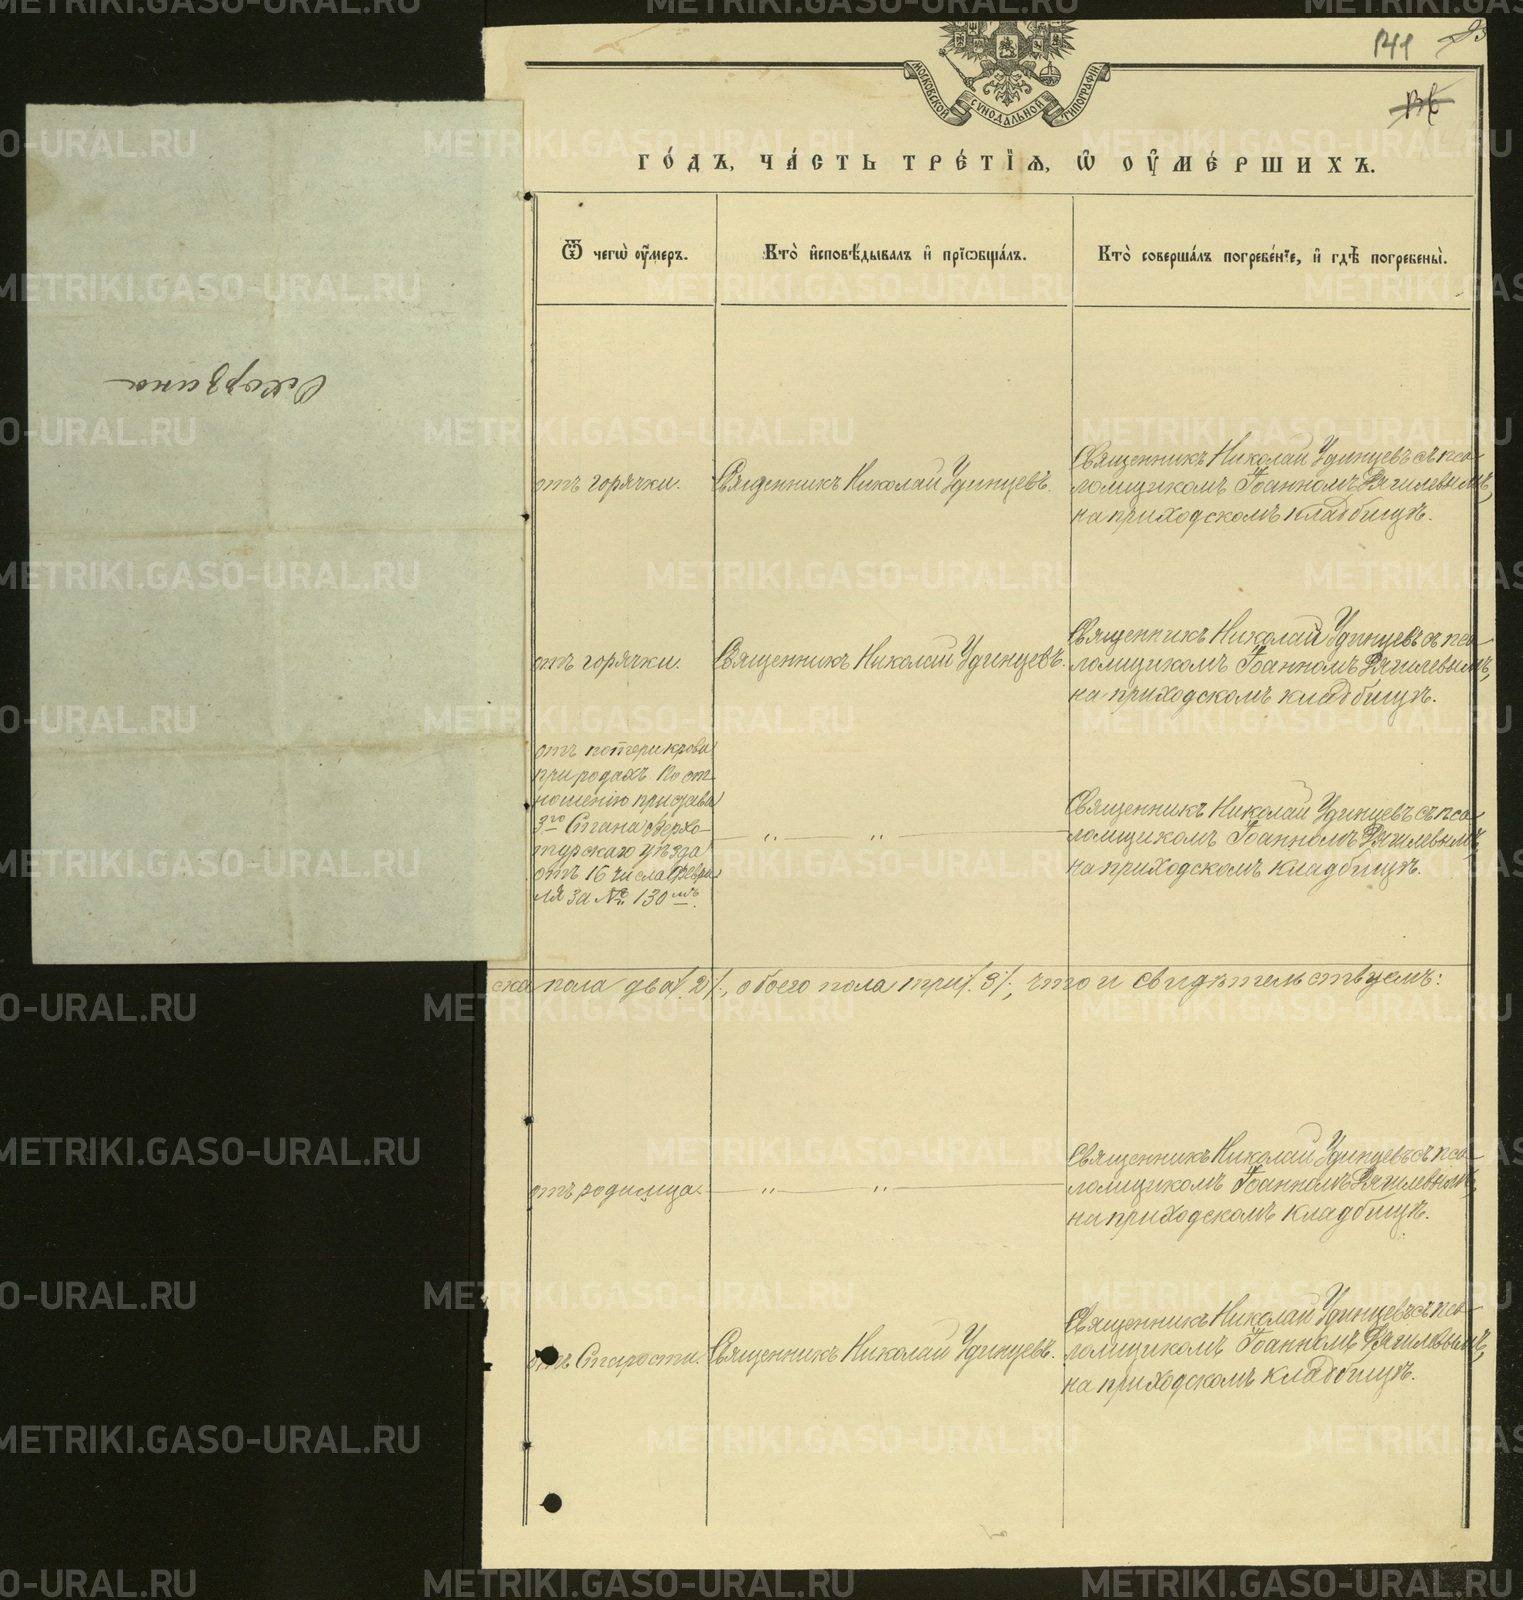 141
МОСКОВСКОЙ СѴНОДАЛЬНОЙ ТИПОГРАФІИ.
ГО́ДЪ, ЧА́СТЬ ТРЕ́ТІѦ, Ѡ ОУ҆МЕ́РШИХЪ.
Ѿ чегѡ̀ оу҆́меръ.
Кто̀ и҆сповѣ́дывалъ и҆ прїѡбща́лъ.
Кто̀ соверша́лъ погребе́нїе, и҆ гдѣ̀ погребены̀.
отъ горячки.
Священникъ Николай Удинцевъ.
Священникъ Николай Удинцевъ съ пса-
ломщикомъ Іоанномъ Рычилевымъ,
на приходскомъ кладбищѣ.
отъ горячки.
Священникъ Николай Удинцевъ.
Священникъ Николай Удинцевъ съ пса-
ломщикомъ Іоанномъ Рычилевымъ,
на приходскомъ кладбищѣ.
отъ потери крови
при родахъ. По от-
ношенію пристава
3го Стана Верхо-
турскаго уѣзда
отъ 16 числа Февра-
ля за № 130мъ.
„ „
Священникъ Николай Удинцевъ съ пса-
ломщикомъ Іоанномъ Рычилевымъ,
на приходскомъ кладбищѣ.
ска пола два /.2/., обоего пола три /.3/., что и свидѣтельствуемъ:
отъ родимца.
„ „
Священникъ Николай Удинцевъ съ пса-
ломщикомъ Іоанномъ Рычилевымъ,
на приходскомъ кладбищѣ.
отъ Старости.
Священникъ Николай Удинцевъ.
Священникъ Николай Удинцевъ съ пса-
ломщикомъ Іоанномъ Рычилевымъ,
на приходскомъ кладбищѣ.
METRIKI.GASO-URAL.RU